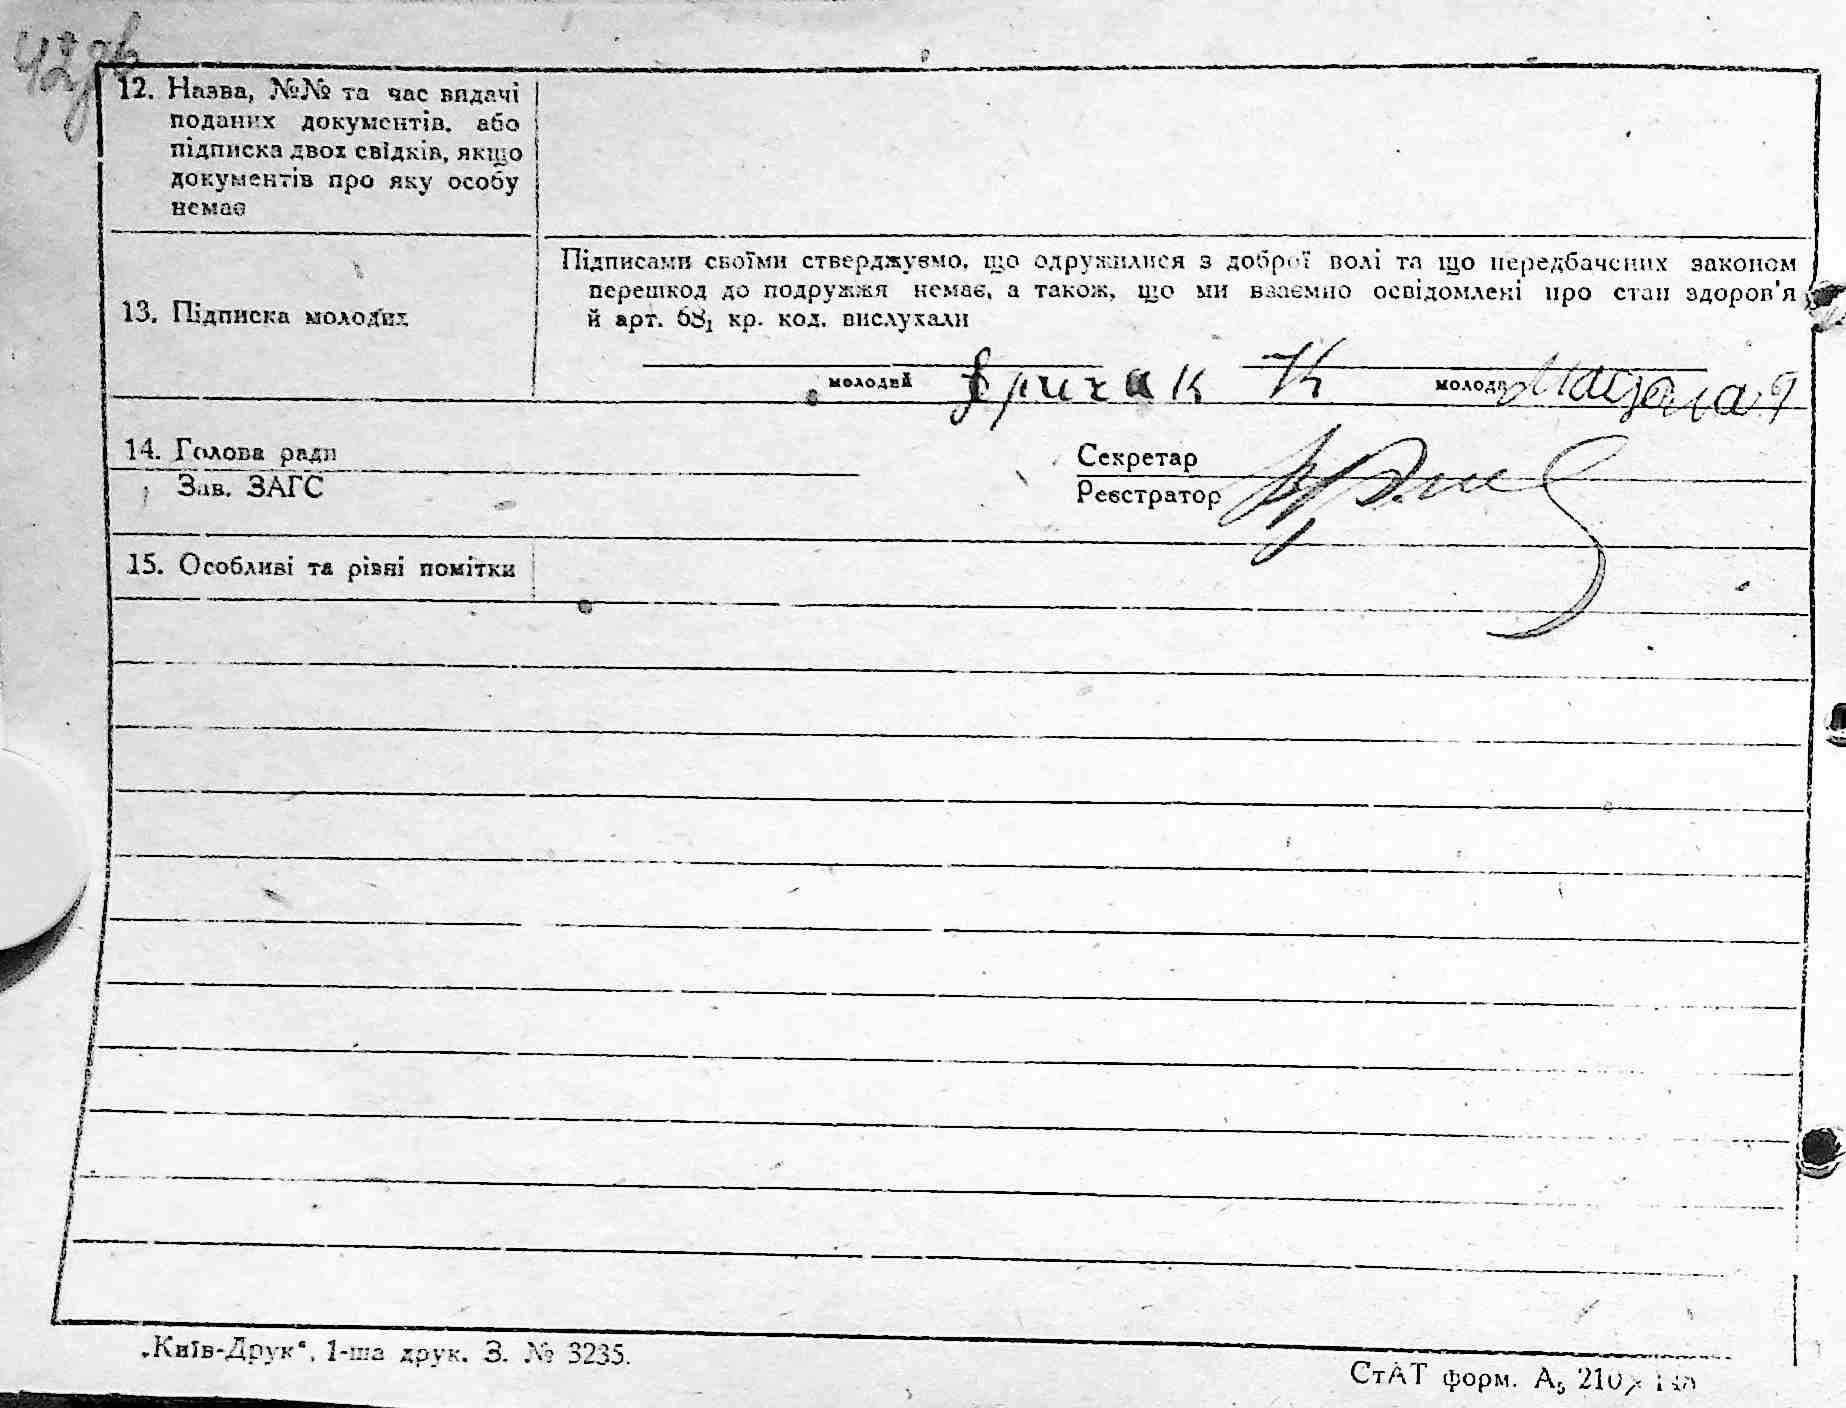 12. Назва, №№ та час видачі
поданих документів, або
підписка двох свідків, якщо
документів про яку особу
немає
Підписами своїми стверджуємо, що одружилися з доброї волі та що передбачених законом
перешкод до подружжя немає, а також, що ми взаємно освідомлені про стан здоров'я
й арт. 68₁ кр. код. вислухали
13. Підписка молодих
молодий К молода
14. Голова ради
Зав. ЗАГС
Секретар
Реєстратор
15. Особливі та різні помітки
„Київ-Друк“, 1-ша друк. З. № 3235.
СтАТ форм. А₅ 210×148